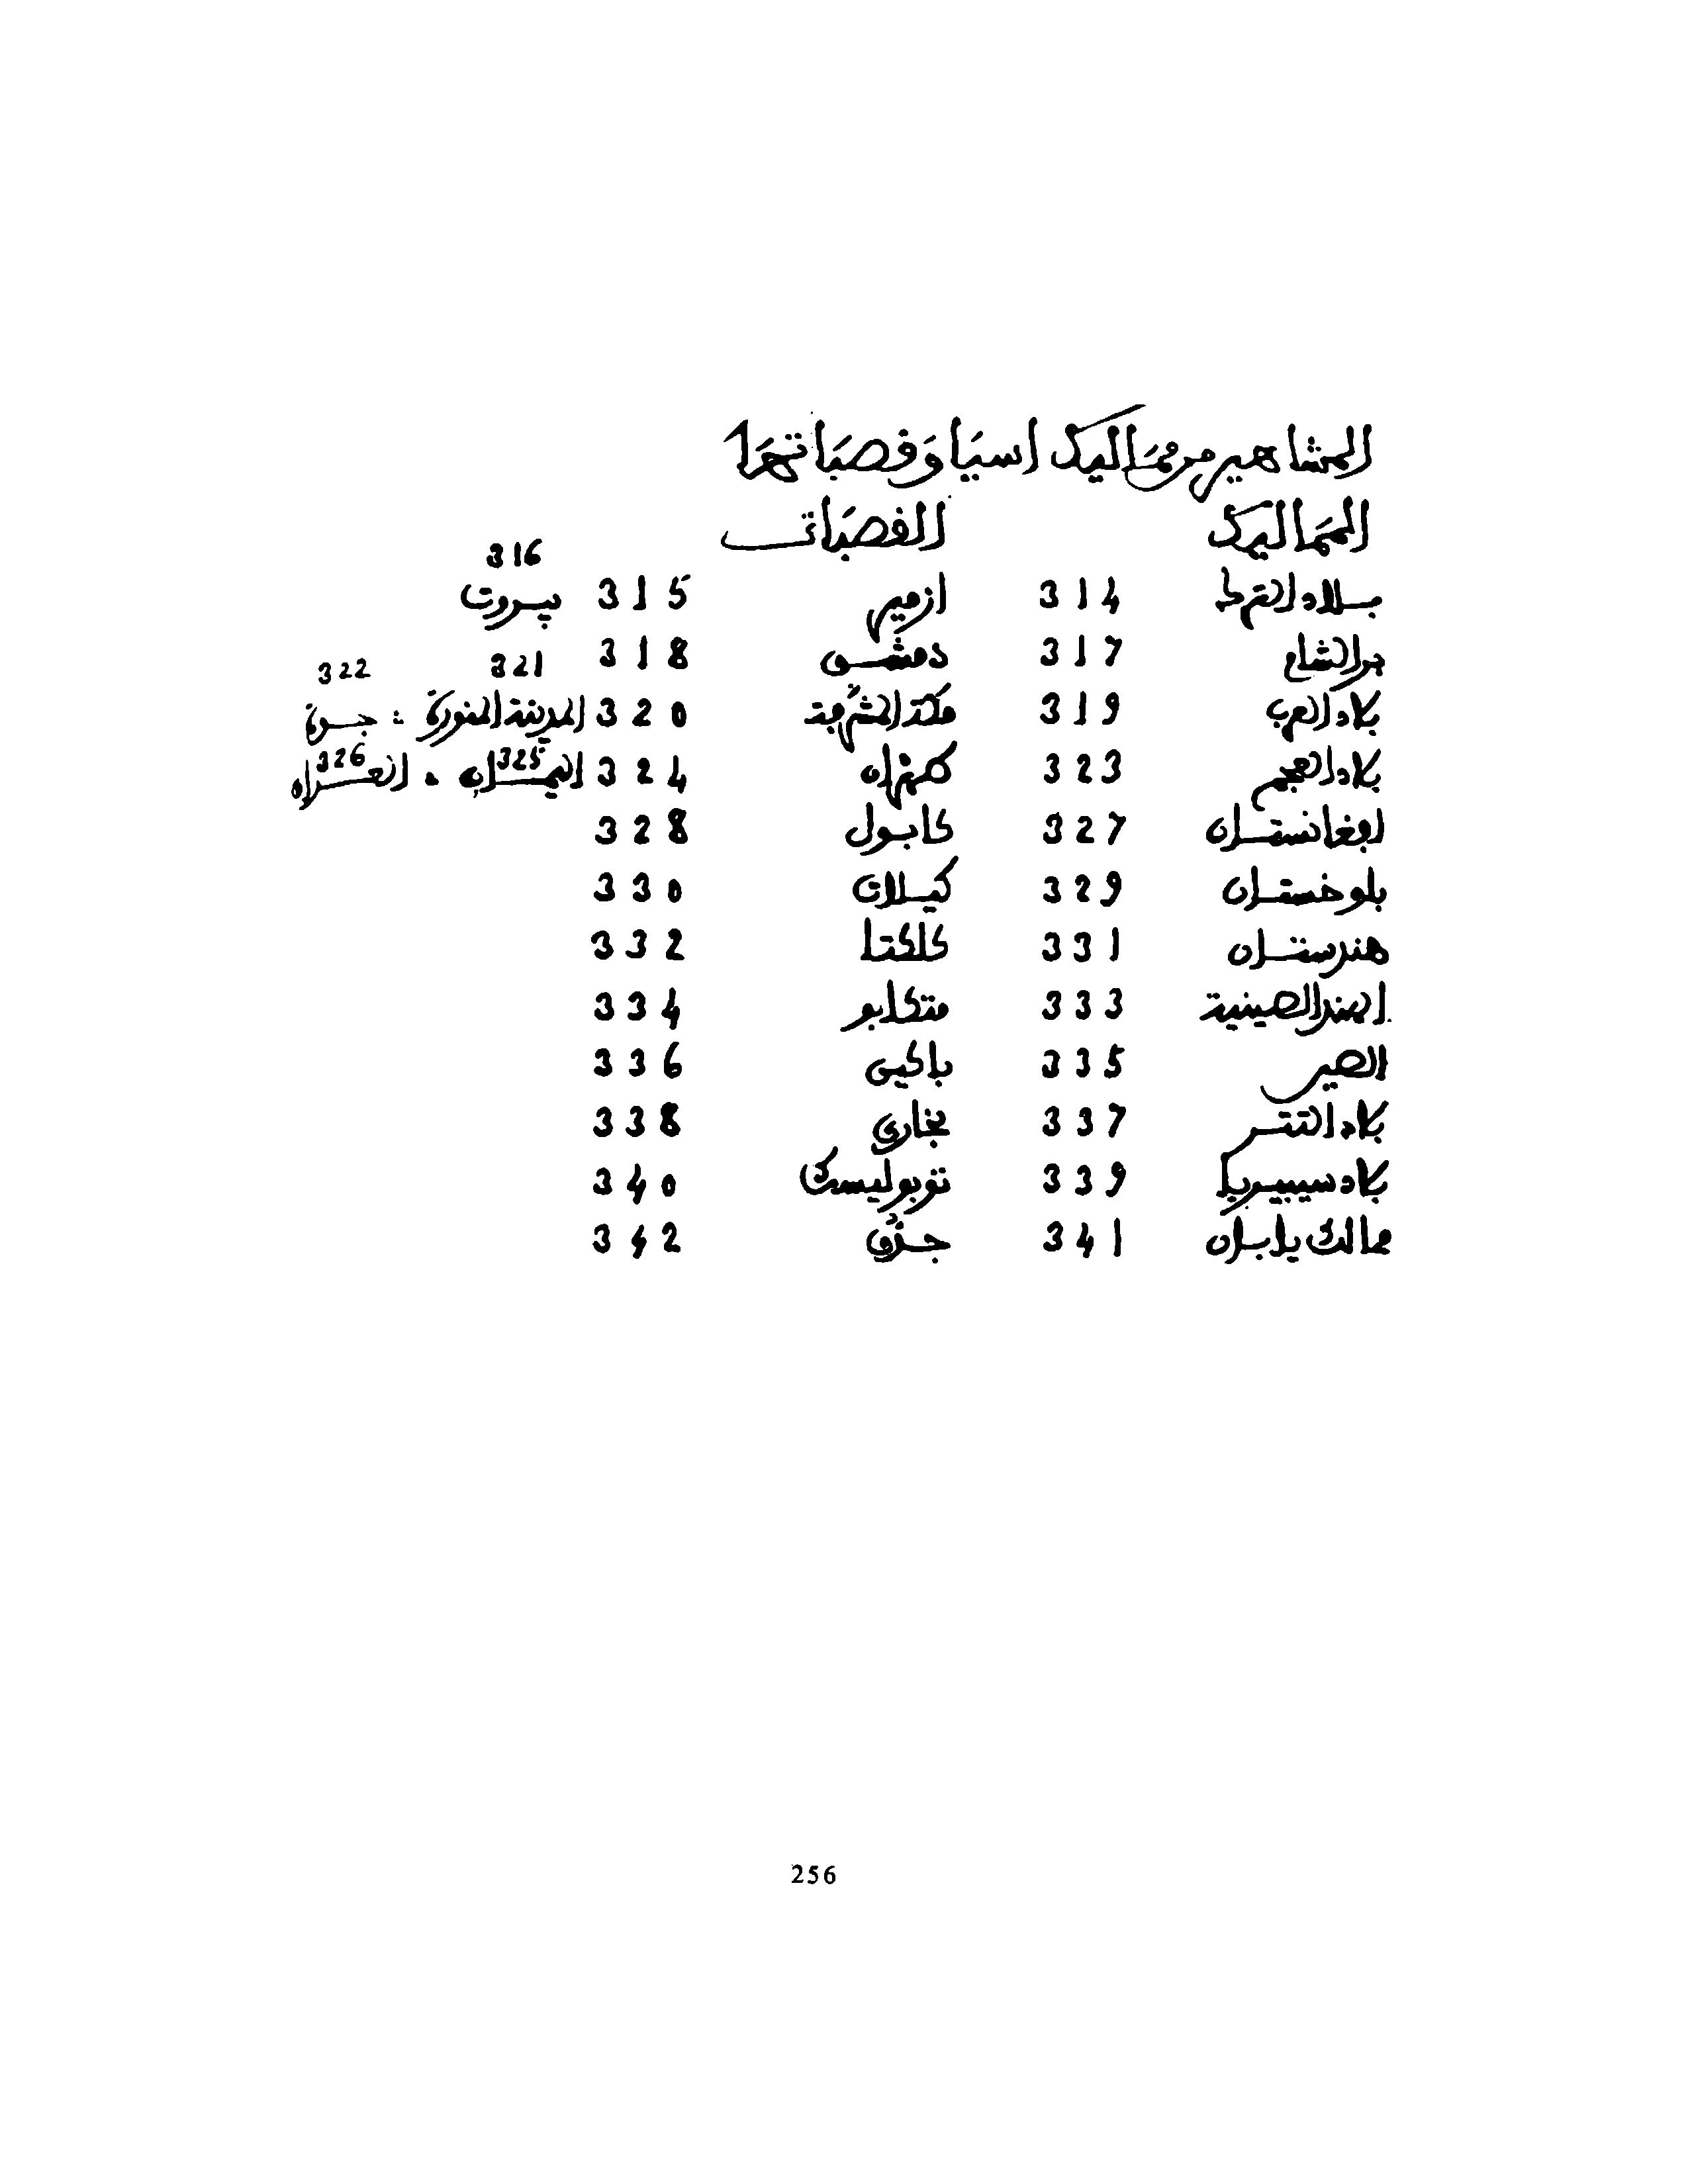 المشاهير من ممالك اسيا وقصباتها
الممالك القصبات
316
بلاد الترك 314 ازمير 315 بيروت
بر الشام 317 دمشق 318 321 322
بلاد العرب 319 مكة المشرفة 320 المدينة المنورة : جدة
بلاد العجم 323 طهران 324 اليمن 325 . العراق 326
افغانستان 327 كابول 328
بلوخستان 329 كيلات 330
هندستان 331 كلكتا 332
الهند الصينية 333 334
الصين 335 باكين 336
بلاد التتر 337 بخارى 338
بلاد سيبيريا 339 توبوليسك 340
ممالك يابان 341 342
256